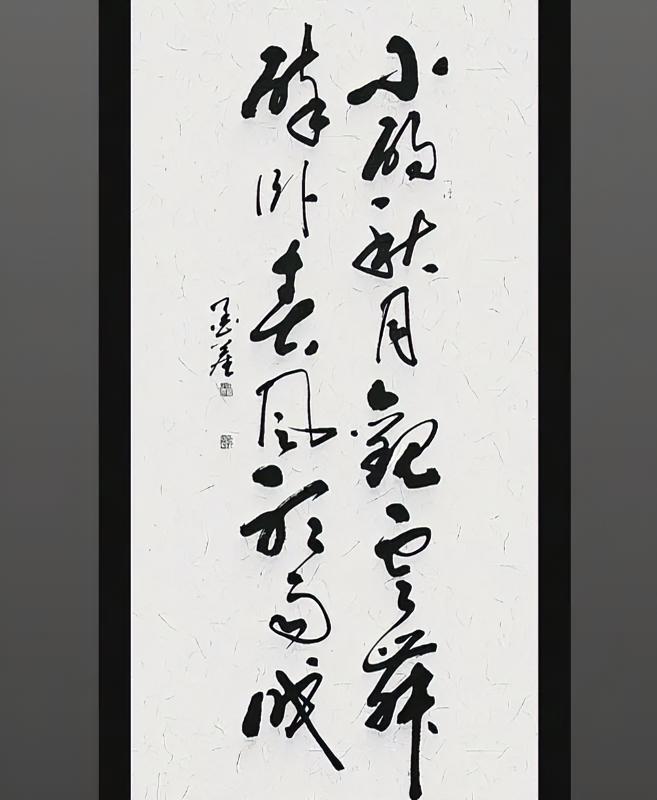 小酌秋月觀雲舞
醉卧春風雨成